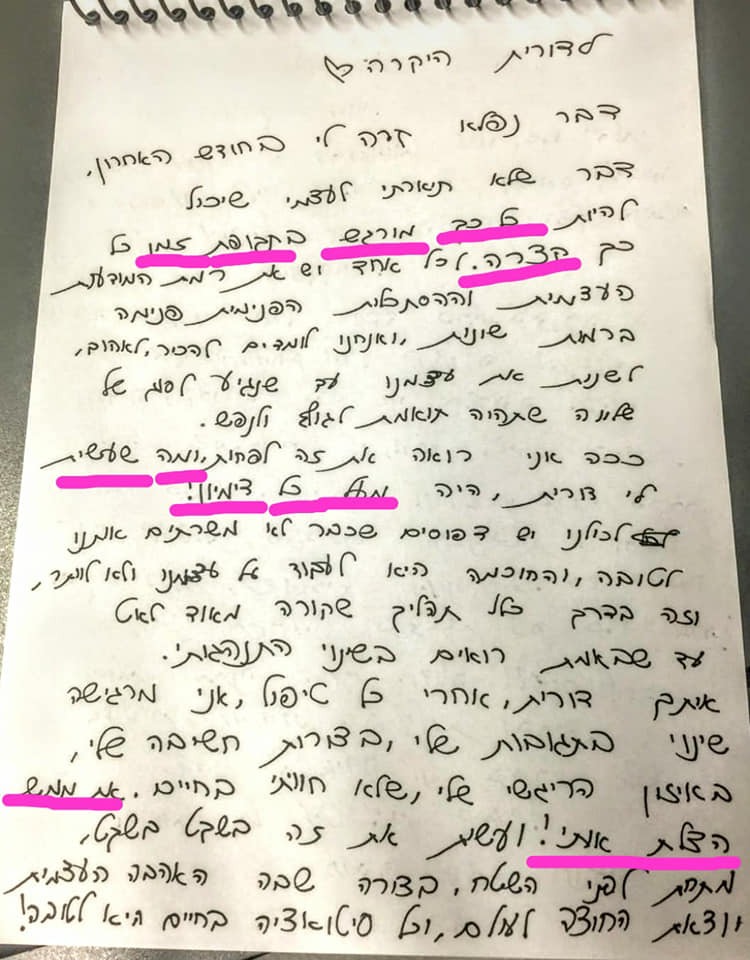 לדורית היקרה:
דבר נפלא קרה לי בחודש האחרון,
דבר שלא תיארתי לעצמי שיכול
להיות כל כך מורגש בתקופת זמן כל
כך קצרה. לכל אחד יש את רמת המודעות
העצמית וההסתכלות הפנימית פנימה
ברמות שונות, ואנחנו לומדים להכיר, לאהוב,
לשנות את עצמנו עד שנגיע לסוג של
שלווה שתהיה תואמת לגוף ולנפש.
ככה אני רואה את זה לפחות, ומה שעשית
לי דורית, היה מעל כל דימיון!
לכולנו יש דפוסים שכבר לא משרתים אותנו
לטובה, והחוכמה היא לעבוד על עצמנו ולא לוותר,
וזה בדרך כלל תהליך שקורה מאוד לאט
עד שבאמת רואים בשינוי התנהגותי.
איתך דורית, אחרי כל טיפול, אני מרגישה
שינוי בתגובות שלי, בצורות חשיבה שלי,
באיזון הריגשי שלי, שלא חוויתי בחיים. את ממש
הצלת אותי! ועשית את זה בשקט בשקט,
מתחת לפני השטח, בצורה שבה האהבה העצמית
יוצאת החוצה לעולם, וכל סיטואציה בחיים היא לטובה!